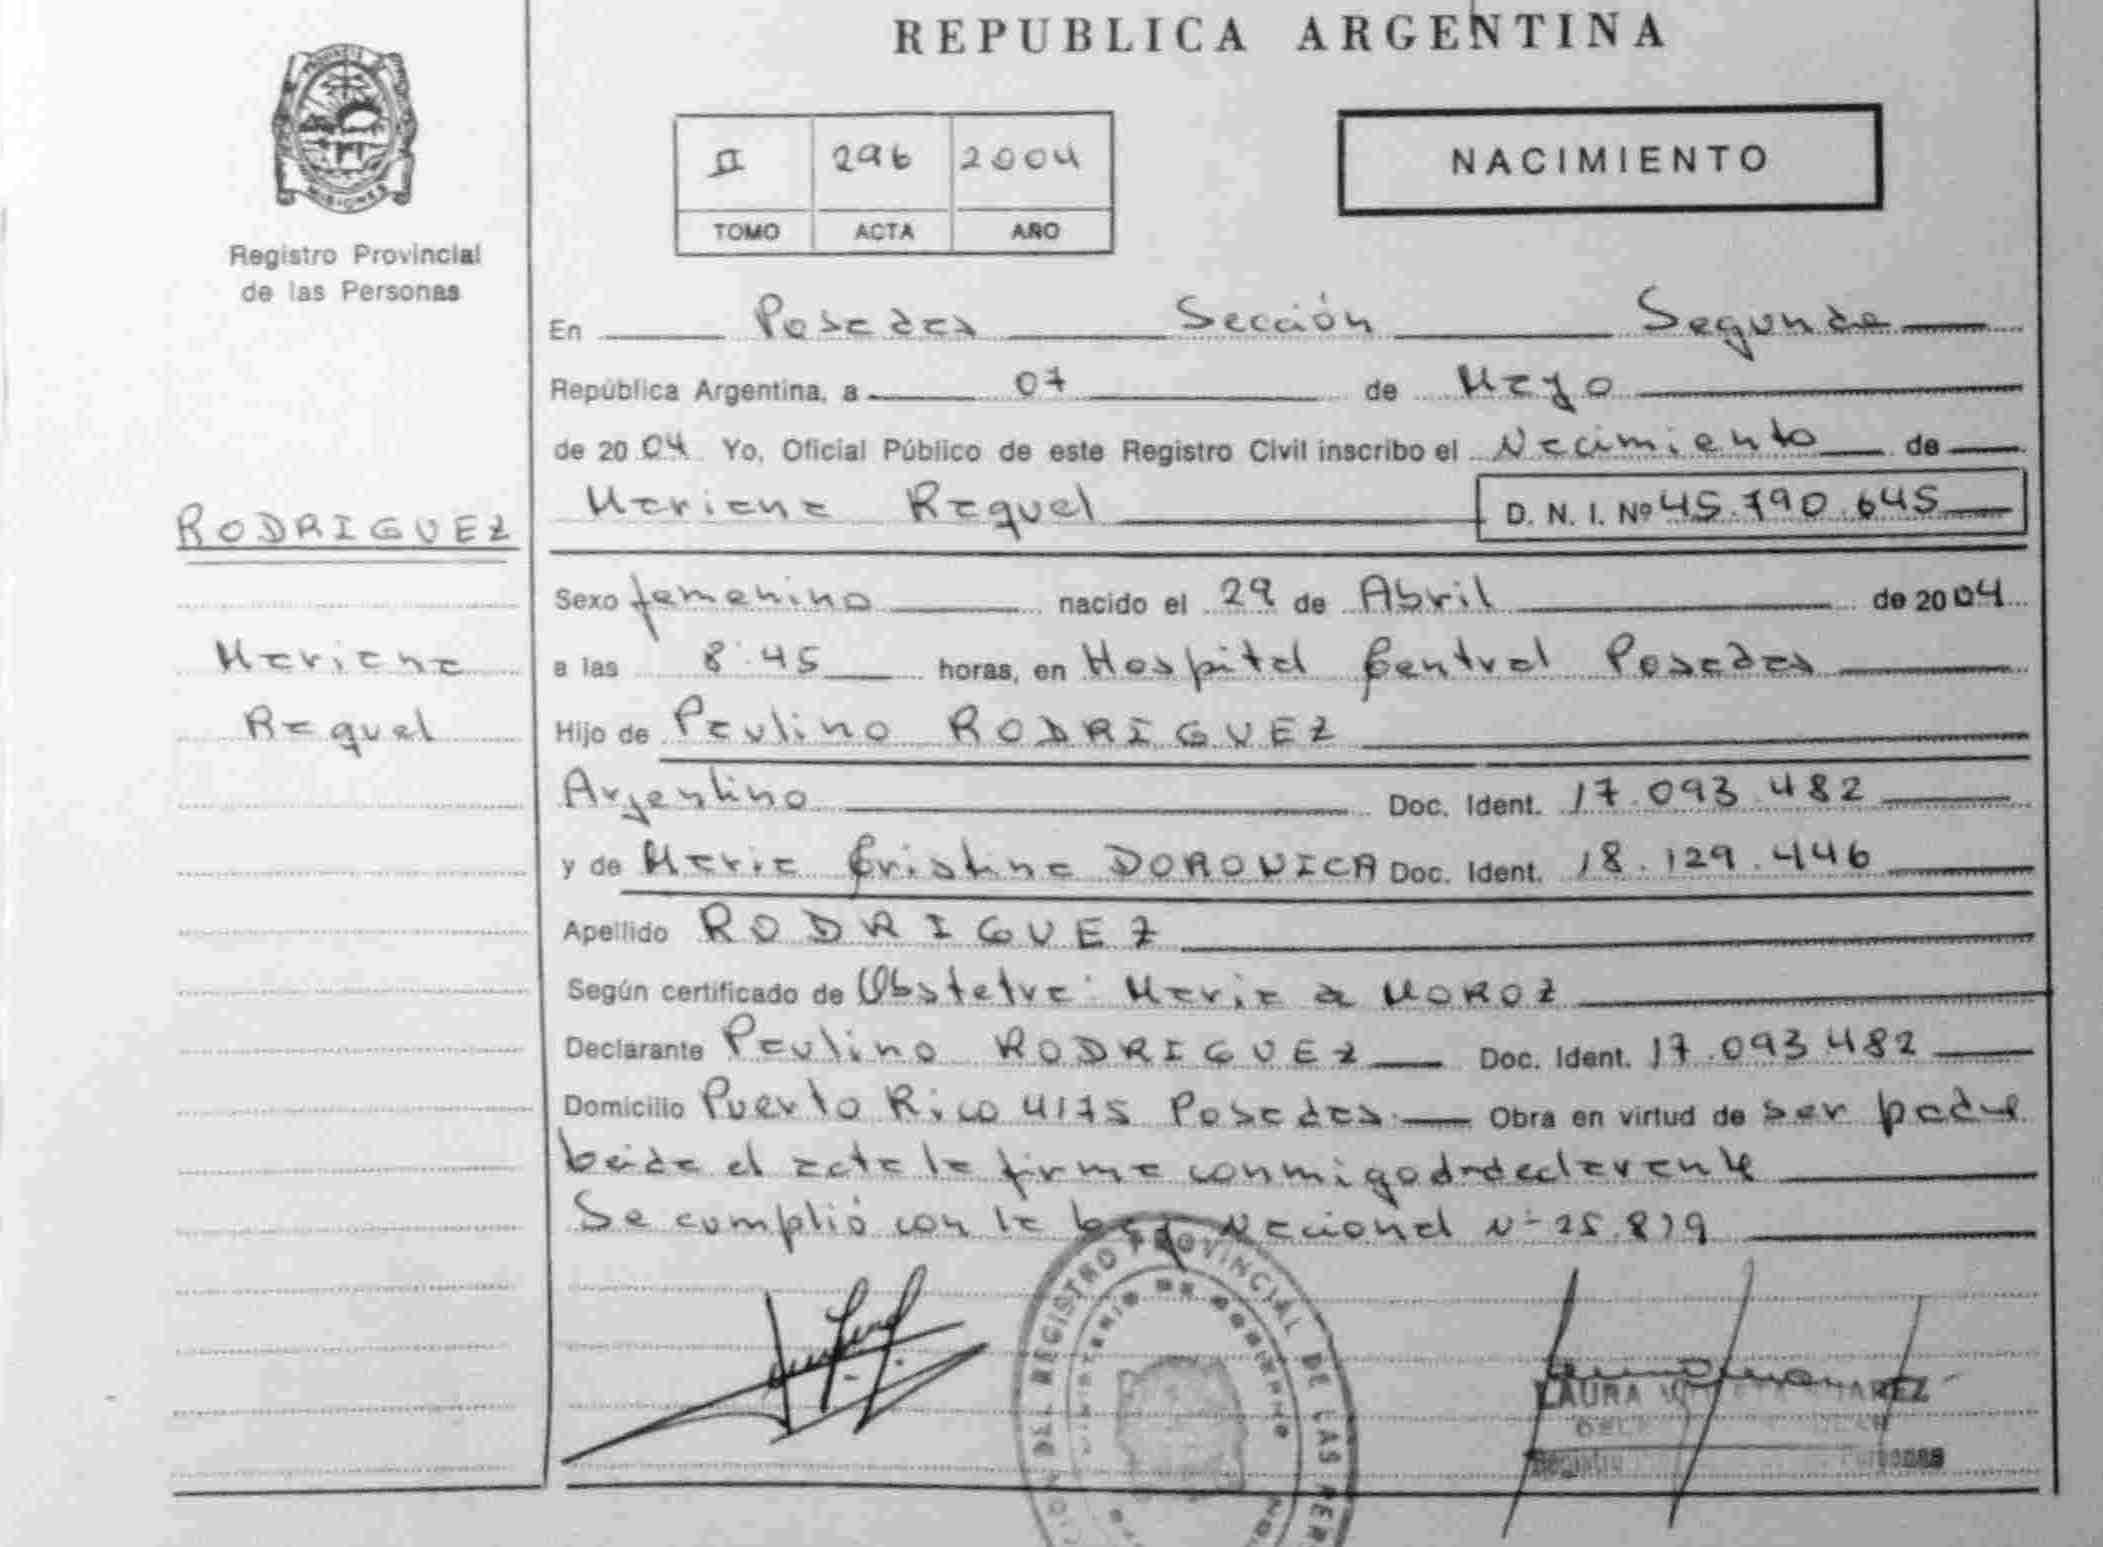 REPUBLICA ARGENTINA
PROVINCIA DE
MISIONES
Registro Provincial
de las Personas
II 296 2004
TOMO ACTA AÑO
NACIMIENTO
En Posadas Sección Segunda
República Argentina, a 07 de Mayo
de 2004 Yo, Oficial Público de este Registro Civil inscribo el Nacimiento de
Mariana Raquel D. N. I. Nº 45.790.645
RODRIGUEZ
Mariana
Raquel
Sexo femenino nacido el 29 de Abril de 2004
a las 8:45 horas, en Hospital Central Posadas
Hijo de Paulino RODRIGUEZ
Argentino Doc. Ident. 17.093.482
y de Maria Cristina DOROVICA Doc. Ident. 18.129.446
Apellido RODRIGUEZ
Según certificado de Obstetra: Maria a MOROZ
Declarante Paulino RODRIGUEZ Doc. Ident. 17.093.482
Domicilio Puerto Rico 4175 Posadas Obra en virtud de ser padre
Leida el acta la firma conmigo declarante
Se cumplió con la Ley Nacional Nº 25.819
DEL REGISTRO PROVINCIAL DE LAS PER
MINISTERIO DE GOBIERNO
LAURA
Registro Personas